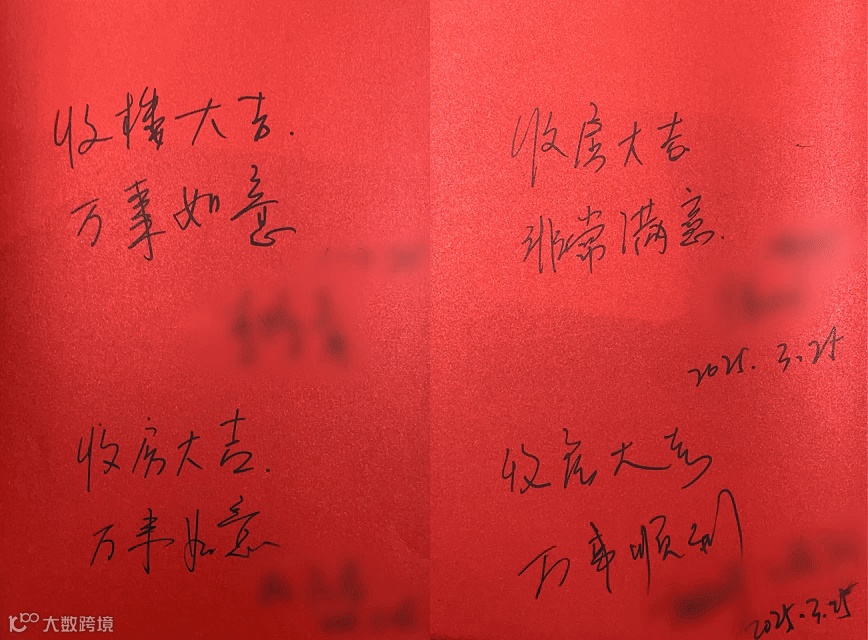 收楼大吉.
万事如意
收房大吉.
万事如意
收房大吉
非常满意.
2025.3.25
收房大吉
万事顺利
2025.3.25
大数跨境